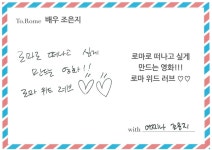 To.Rome 배우 조은지
로마로 떠나고 싶게
만드는 영화!!
로마 위드 러브 ♡♡
로마로 떠나고 싶게
만드는 영화!!!
로마 위드 러브 ♡♡
with